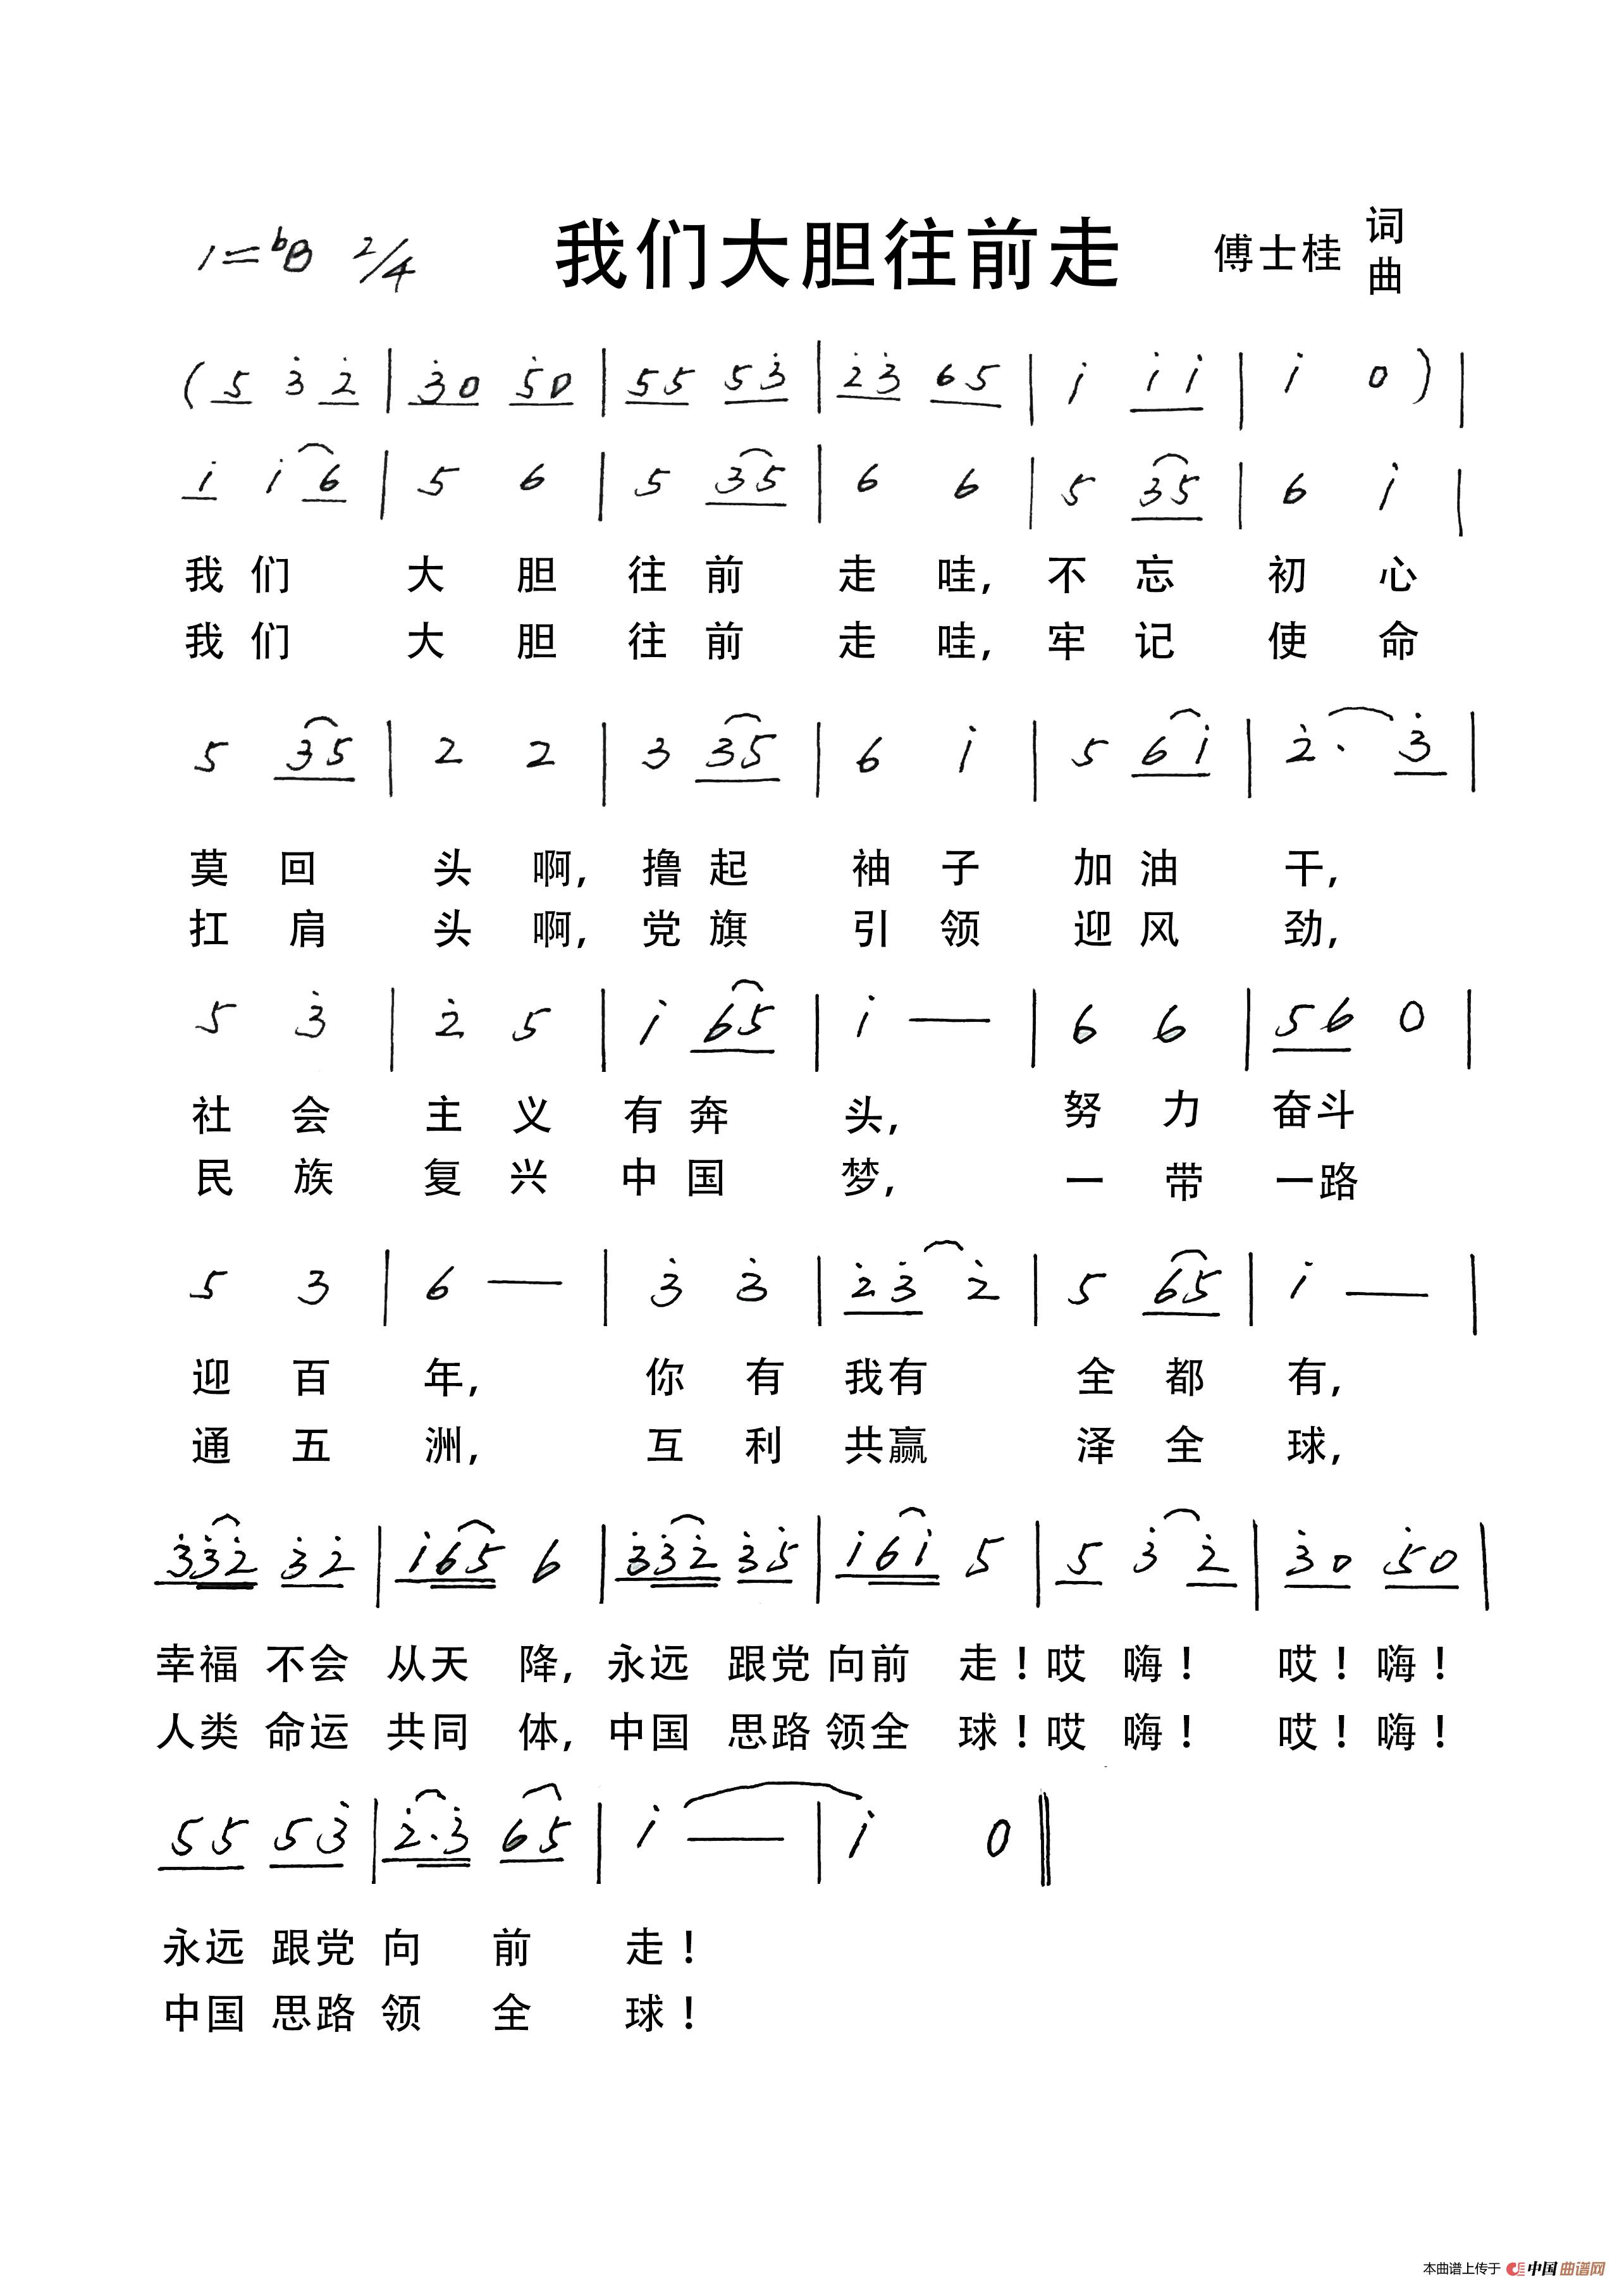 1=bB 2/4 我们大胆往前走 傅士桂 词曲
(5 3̇ 2̇ | 3̇0 5̇0 | 55 53̇ | 2̇3̇ 65 | 1̇ 1̇1̇ | 1̇ 0) |
1̇ 1̇ 6 | 5 6 | 5 35 | 6 6 | 5 35 | 6 1̇ |
我们 大胆 往前 走哇, 不忘 初心
我们 大胆 往前 走哇, 牢记 使命
5 35 | 2 2 | 3 35 | 6 1̇ | 5 61̇ | 2̇· 3̇ |
莫回 头啊, 撸起 袖子 加油 干,
扛肩 头啊, 党旗 引领 迎风 劲,
5 3̇ | 2̇ 5 | 1̇ 65 | 1̇ — | 6 6 | 56 0 |
社会 主义 有奔 头, 努力 奋斗
民族 复兴 中国 梦, 一带 一路
5 3 | 6 — | 3̇ 3̇ | 2̇3̇ 2̇ | 5 65 | 1̇ — |
迎百 年, 你有 我有 全都 有,
通五 洲, 互利 共赢 泽全 球,
3̇3̇2̇ 3̇2̇ | 1̇65 6 | 3̇3̇2̇ 3̇5̇ | 1̇61̇ 5 | 5 3̇ 2̇ | 3̇0 5̇0 |
幸福 不会 从天 降, 永远 跟党 向前 走! 哎 嗨! 哎! 嗨!
人类 命运 共同 体, 中国 思路 领全 球! 哎 嗨! 哎! 嗨!
55 53̇ | 2̇·3̇ 65 | 1̇ — | 1̇ 0 ‖
永远 跟党 向 前 走!
中国 思路 领 全 球!
本曲谱上传于 中国曲谱网